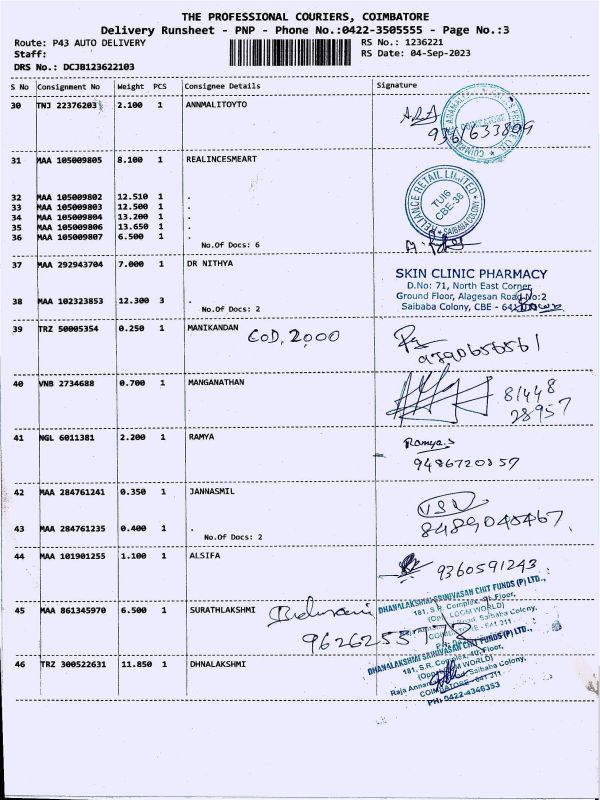 THE PROFESSIONAL COURIERS, COIMBATORE
Delivery Runsheet - PNP - Phone No.:0422-3505555 - Page No.:3
Route: P43 AUTO DELIVERY
RS No.: 1236221
Staff:
RS Date: 04-Sep-2023
DRS No.: DCJB123622103
S No Consignment No Weight PCS Consignee Details Signature
30 TNJ 22376203 2.100 1 ANNMALITOYTO
9361633809
31 MAA 105009805 8.100 1 REALINCESMEART
RELIANCE RETAIL LIMITED
TUI6
CBE-38
SAIBABA COLONY
32 MAA 105009802 12.510 1 .
33 MAA 105009803 12.500 1 .
34 MAA 105009804 13.200 1 .
35 MAA 105009806 13.650 1 .
36 MAA 105009807 6.500 1 .
No.Of Docs: 6
37 MAA 292943704 7.000 1 DR NITHYA
SKIN CLINIC PHARMACY
D.No: 71, North East Corner,
Ground Floor, Alagesan Road No:2
Saibaba Colony, CBE - 641
38 MAA 102323853 12.300 3 .
No.Of Docs: 2
39 TRZ 50005354 0.250 1 MANIKANDAN
COD, 2000
9790656561
40 VNB 2734688 0.700 1 MANGANATHAN
81448
28957
41 NGL 6011381 2.200 1 RAMYA
Ramya.S
9486720857
42 MAA 284761241 0.350 1 JANNASMIL
43 MAA 284761235 0.400 1 .
No.Of Docs: 2
8489045467.
44 MAA 101901255 1.100 1 ALSIFA
9360591243
45 MAA 861345970 6.500 1 SURATHLAKSHMI
DHANALAKSHMI SRINIVASAN CHIT FUNDS (P) LTD.,
181, S.R. Complex, Floor,
(Opp. LOOM WORLD)
Saibaba Colony,
COIMBATORE - 641 211
46 TRZ 300522631 11.850 1 DHNALAKSHMI
DHANALAKSHMI SRINIVASAN CHIT FUNDS (P) LTD.,
181, S.R. Complex, Floor,
(Opp. LOOM WORLD)
Saibaba Colony,
COIMBATORE - 641 211
PH: 0422-4346353